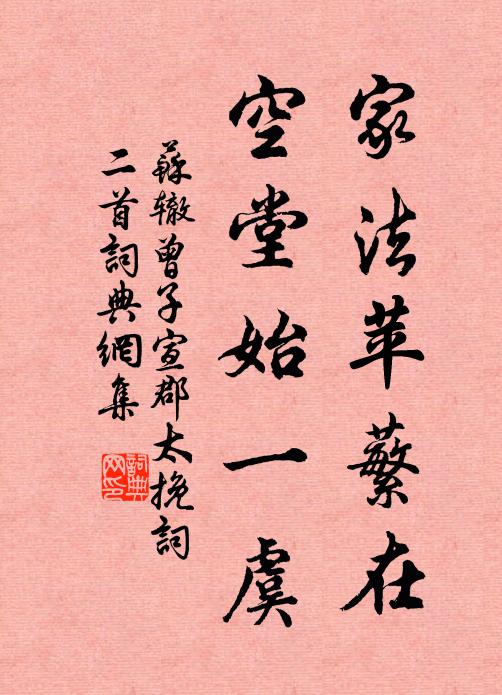 家法苹蘩在
空堂始一虞
蘇辙曾子宣郡太挽詞
二首詞典網集
詞典网印